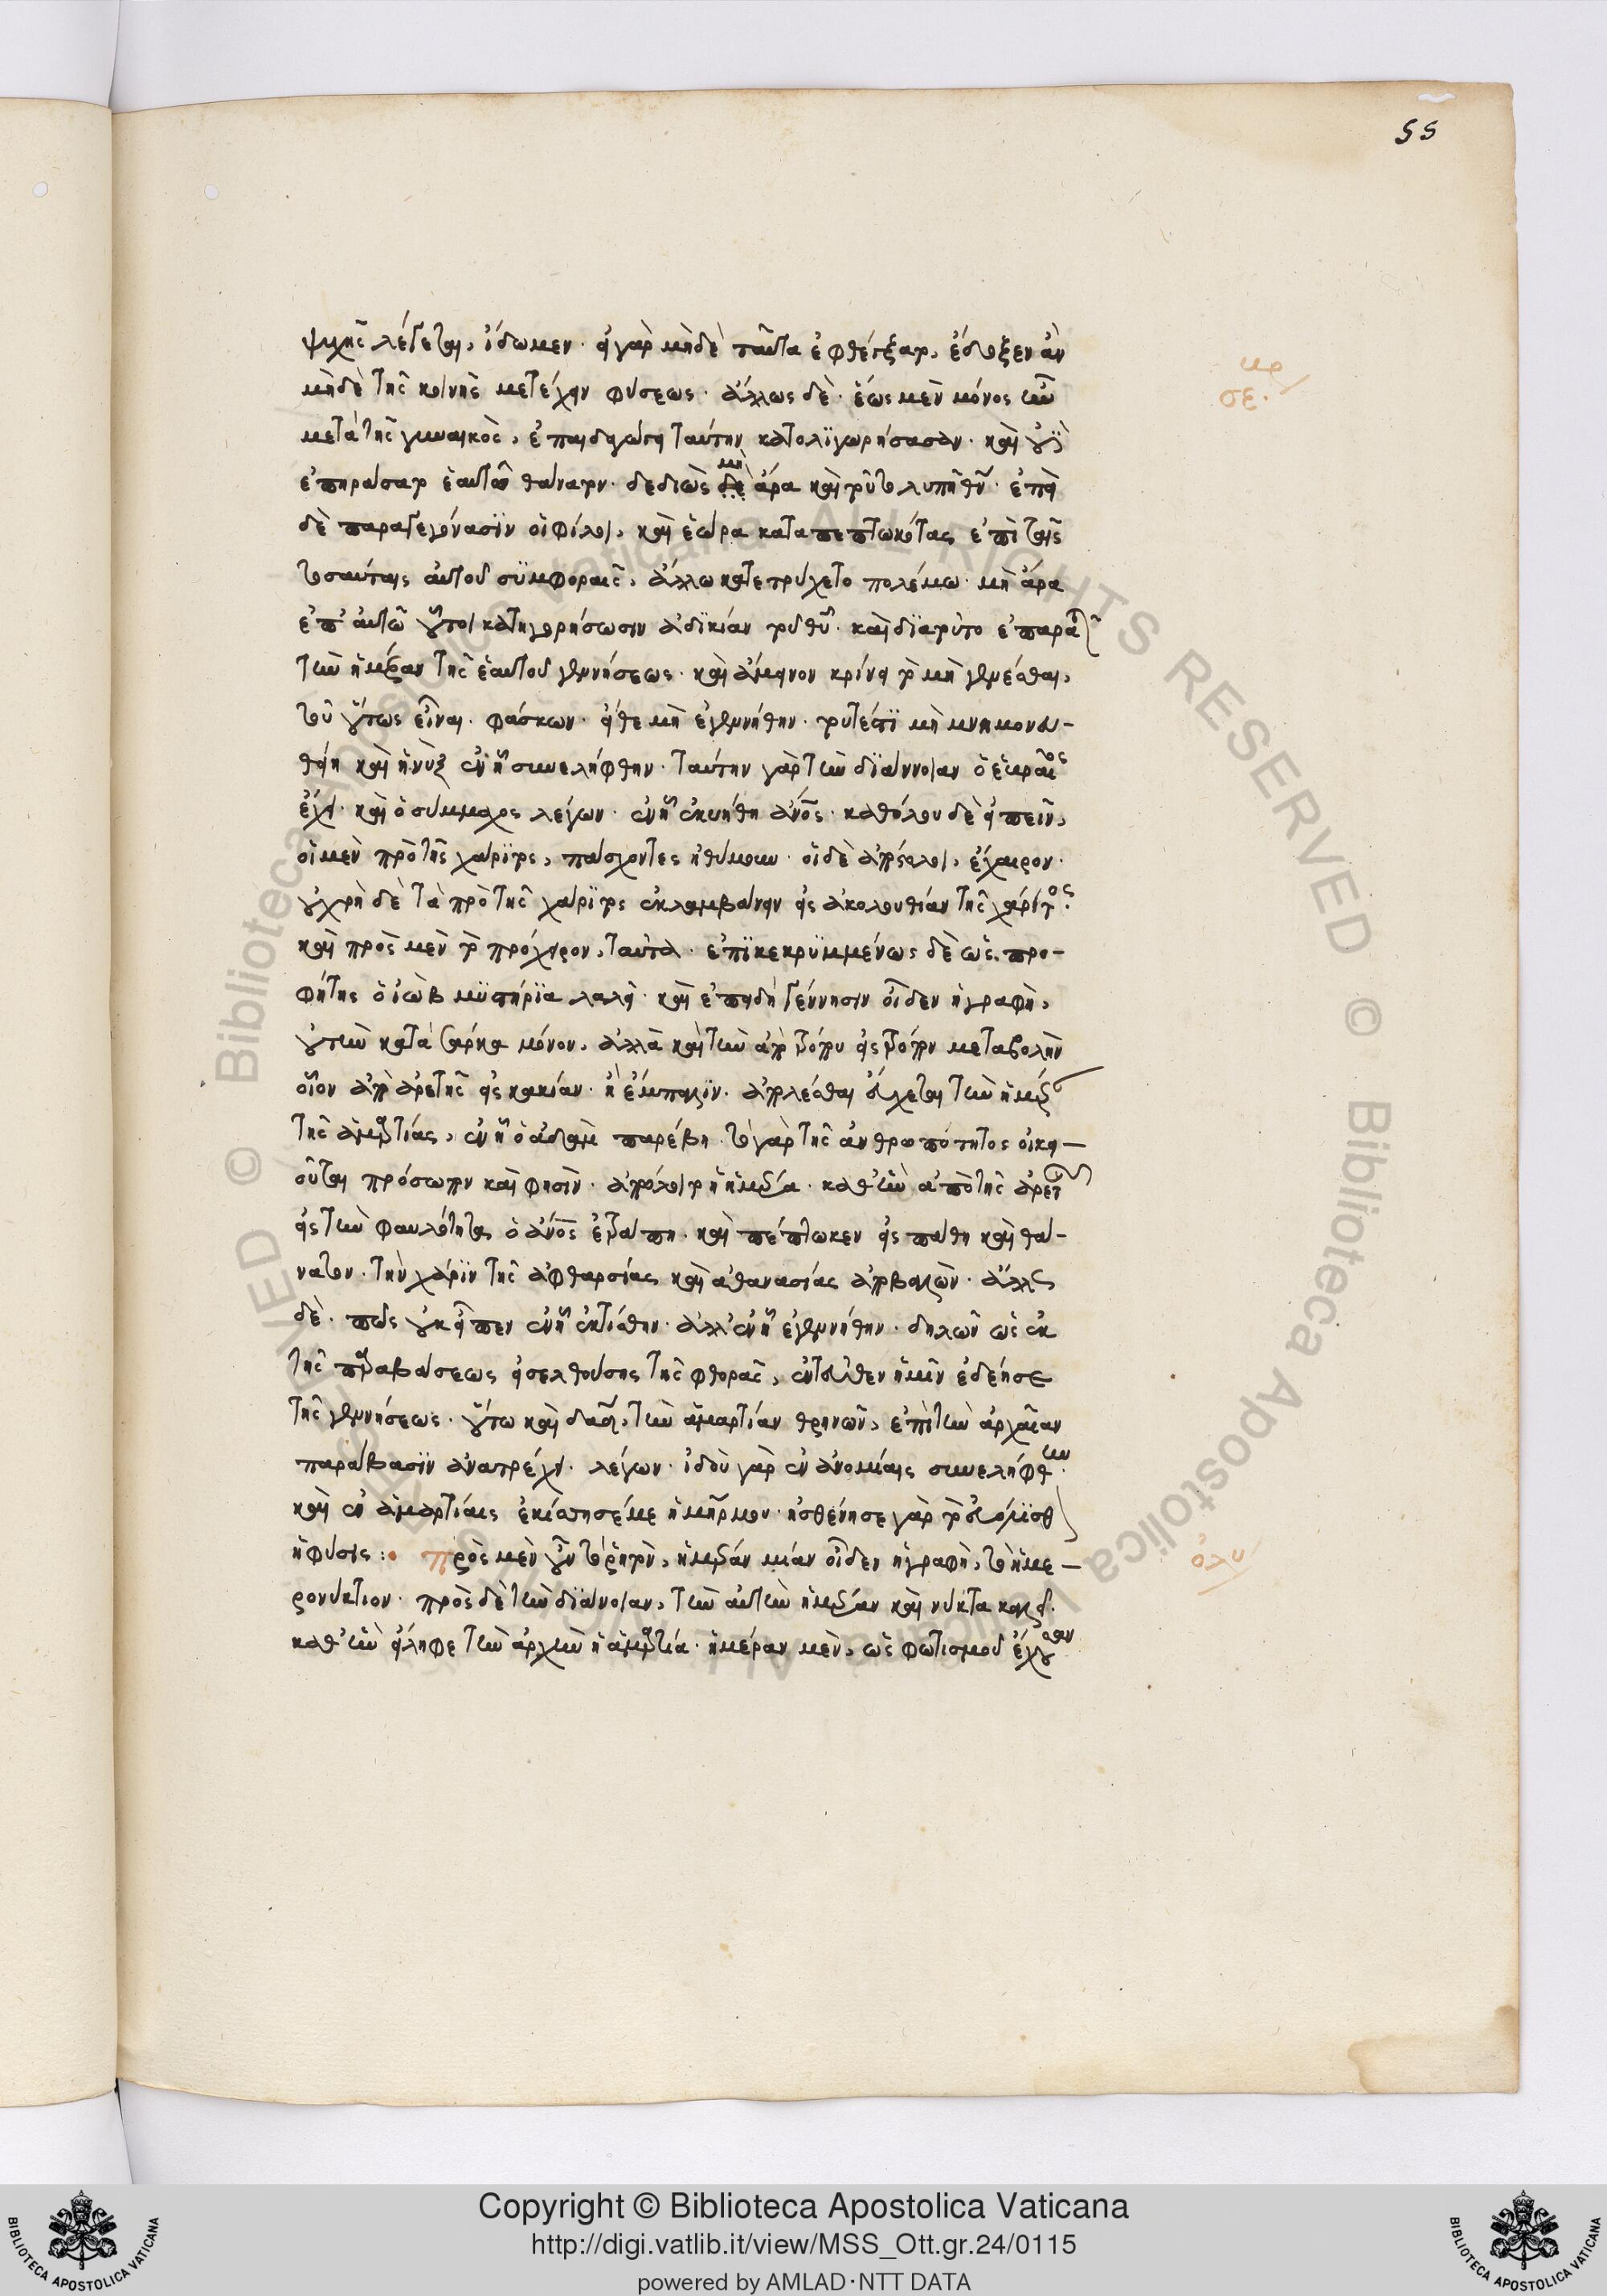 55
ψυχῆς λέγεται, ἴδωμεν· εἰ γὰρ μὴδὲ ταῦτα ἐφθέγξατο, ἔδοξεν ἂν
μὴδὲ τῆς κοινῆς μετέχειν φύσεως· ἄλλως δὲ· ἕως μὲν μόνος ἦν
μετὰ τῆς γυναικὸς, ἐπαιδαγώγει ταύτην κατολιγωρήσασαν· καὶ οὐκ
ἐπηράσατο ἑαυτῶ θάνατον· δεδιὼς δὲ μὴ ἄρα καὶ τοῦτο λυπῆ θν· ἐπεὶ
δὲ παραγεγόνασιν οἱ φίλοι, καὶ ἑώρα καταπεπτωκότας ἐπὶ ταῖς
τοσαύταις αὐτοῦ συμφοραῖς, ἄλλω κατετρύχετο πολέμω· μὴ ἄρα
ἐπ' αὐτῶ οὗτοι κατηγορήσωσιν ἀδικίαν τοῦ θυ· καὶ διατοῦτο ἐπαρᾶτ
τὴν ἡμέραν τῆς ἑαυτοῦ γεννήσεως· καὶ ἄμεινον κρίνει τὸ μὴ γενέσθαι,
τοῦ οὕτως εἶναι· φάσκων· εἴθε μὴ ἐγεννήθην· τουτέστι μὴ μνημονευ-
θείη καὶ ἡ νὺξ ἐν ἧ συνελήφθην· ταύτην γὰρ τὴν διάννοιαν ὁ ἑβραῖος
ἔχει· καὶ ὁ σύμμαχος λέγων· ἐν ἧ ἐκυήθη ἄνος· καθόλου δὲ εἰπεῖν,
οἱ μὲν πρὸ τῆς χάριτος, πάσχοντες ἠθύμουν· οἱ δὲ ἀπόστολοι, ἔχαιρον·
οὐ χρὴ δὲ τὰ πρὸ τῆς χάριτος ἐκλαμβάνειν εἰς ἀκολουθίαν τῆς χάριτος·
καὶ πρὸς μὲν τὸ πρόχειρον, ταῦτα· ἐπικεκρυμμένως δὲ ὡς προ-
φήτης ὁ ἰὼβ μυστήρια λαλεῖ· καὶ ἐπειδὴ γέννησιν οἶδεν ἡ γραφὴ,
οὐ τὴν κατὰ σάρκα μόνον, ἀλλὰ καὶ τὴν ἀπὸ τρόπου εἰς τρόπον μεταβολὴν
οἷον ἀπὸ ἀρετῆς εἰς κακίαν· ἢ ἔμπαλιν· ἀπολέσθαι εὔχεται τὴν ἡμέρ
τῆς ἁμαρτίας, ἐν ἧ ὁ ἀδὰμ παρέβη· τὸ γὰρ τῆς ἀνθρωπότητος οἰκει-
οῦται πρόσωπον καὶ φησὶν· ἀπόλοιτο ἡ ἡμέρα· καθ' ἣν ἀπὸ τῆς ἀρετ
εἰς τὴν φαυλότητα ὁ ἄνος ἐτράπη· καὶ πέπτωκεν εἰς πάθη καὶ θά-
νατον· τὴν χάριν τῆς ἀφθαρσίας καὶ ἀθανασίας ἀποβαλὼν· ἄλλως
δὲ· πῶς οὐκ εἶπεν ἐν ἧ ἐκτίσθην· ἀλλ' ἐν ἧ ἐγεννήθην· δηλῶν ὡς ἐκ
τῆς παραβάσεως εἰσελθούσης τῆς φθορᾶς, ἐντεῦθεν ἡμῖν ἐδέησε
τῆς γεννήσεως· οὕτω καὶ δαδ, τὴν ἁμαρτίαν θρηνῶν, ἐπὶ τὴν ἀρχαίαν
παράβασιν ἀνατρέχει· λέγων· ἰδοὺ γὰρ ἐν ἀνομίαις συνελήφθην·
καὶ ἐν ἁμαρτίαις ἐκίσσησέ με ἡ μηρ μου· ἠσθένησε γὰρ τὸ εὐολίσθ
ἡ φύσις :• πρὸς μὲν οὖν τὸ ῥητὸν, ἡμέραν μίαν οἶδεν ἡ γραφὴ, τὸ ἡμε-
ρονύκτιον· πρὸς δὲ τὴν διάνοιαν, τὴν αὐτὴν ἡμέραν καὶ νύκτα καλεῖ·
καθ' ἣν εἴληφε τὴν ἀρχὴν ἡ ἁμαρτία· ἡμέραν μὲν, ὡς φωτισμοῦ ἔχουσαν
σε.
ὀλυ
Copyright © Biblioteca Apostolica Vaticana
http://digi.vatlib.it/view/MSS_Ott.gr.24/0115
powered by AMLAD·NTT DATA